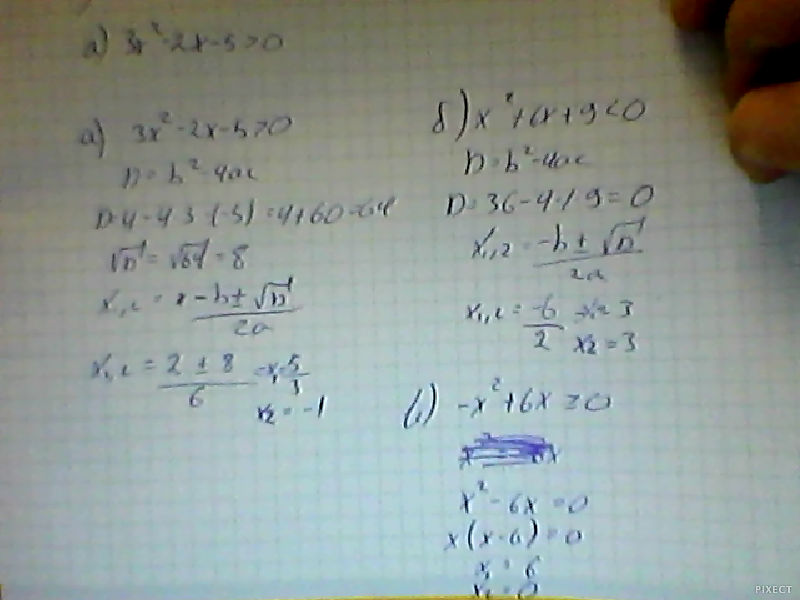 а) 3x² - 2x - 5 > 0
а) 3x² - 2x - 5 > 0
D = b² - 4ac
D = 4 - 4·3·(-5) = 4 + 60 = 64
√D = √64 = 8
x₁,₂ = -b ± √D / 2a
x₁,₂ = 2 ± 8 / 6 = x₁ = 5/3
x₂ = -1
б) x² + 6x + 9 < 0
D = b² - 4ac
D = 36 - 4·1·9 = 0
x₁,₂ = -b ± √D / 2a
x₁,₂ = -6 / 2 = x₁ = 3
x₂ = 3
-x² + 6x ≥ 0
x² - 6x = 0
x(x - 6) = 0
x₁ = 6
x₂ = 0
PIXECT